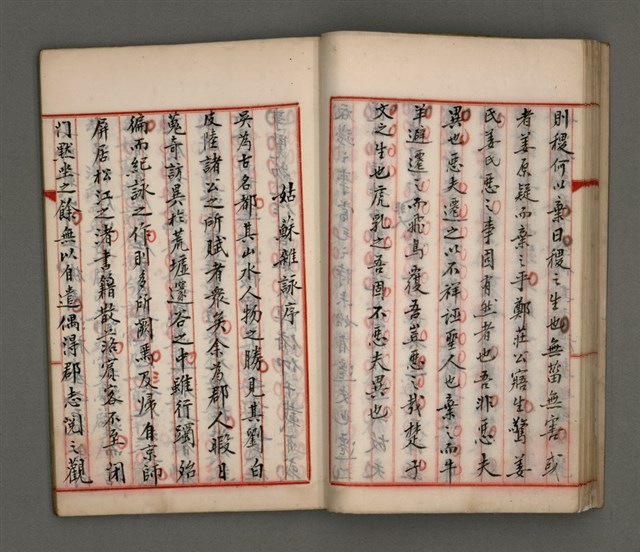 則稷何以棄曰稷之生也無菑無害或
者姜原疑而棄之乎鄭莊公寤生驚姜
氏姜氏惡之事固有然者也吾非惡夫
異也惡夫遷之以不祥誣聖人也棄之而牛
羊避遷之而飛鳥覆吾豈惡之哉楚子
文之生也虎乳之吾固不惡夫異也
姑蘇雜詠序
吳為古名都其山水人物之勝見其劉白
皮陸諸公之所賦者衆矣余為郡人暇日
蒐奇訪異於荒墟邃谷之中雖行躅殆
徧而紀詠之作則多所闕焉及歸自京師
屏居松江之渚書籍散落賓客不至閉
門默坐之餘無以自遣偶得郡志閱之觀